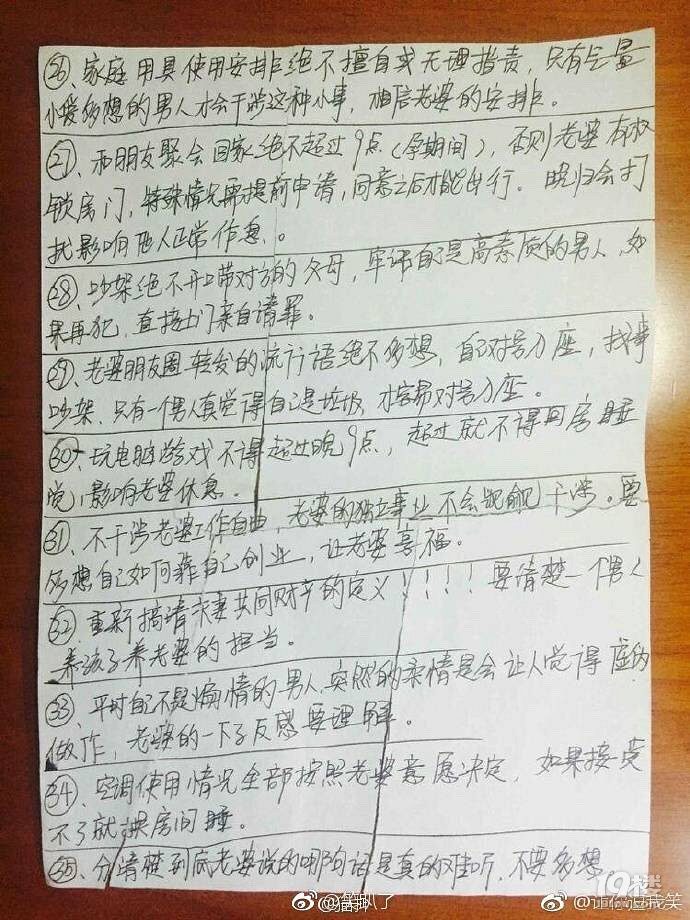 ㉖、家庭用具使用安排绝不擅自或无理指责，只有气量
小爱多想的男人才会干涉这种小事，相信老婆的安排。
㉗、和朋友聚会回家绝不超过9点（孕期间），否则老婆有权
锁房门，特殊情况需提前申请，同意之后才能出行。晚归会打
扰影响他人正常作息。
㉘、吵架绝不开口带对方的父母，牢记自己是高素质的男人，如
果再犯，直接上门亲自请罪。
㉙、老婆朋友圈转发的流行语绝不多想，自己对号入座，找事
吵架，只有一个男人真觉得自己是垃圾，才容易对号入座。
㉚、玩电脑游戏不得超过晚9点，超过就不得同房睡
觉，影响老婆休息。
㉛、不干涉老婆工作自由，老婆的独立事业不会觊觎干涉。要
多想自己如何靠自己创业，让老婆享福。
㉜、重新搞清夫妻共同财产的定义！！！！要清楚一个男人
养孩子养老婆的担当。
㉝、平时自己不是煽情的男人，突然的柔情是会让人觉得虚伪
做作，老婆的一下子反感要理解。
㉞、空调使用情况全部按照老婆意愿决定，如果接受
不了就换房间睡。
㉟、分清楚到底老婆说的哪句话是真的难听，不要多想
19楼